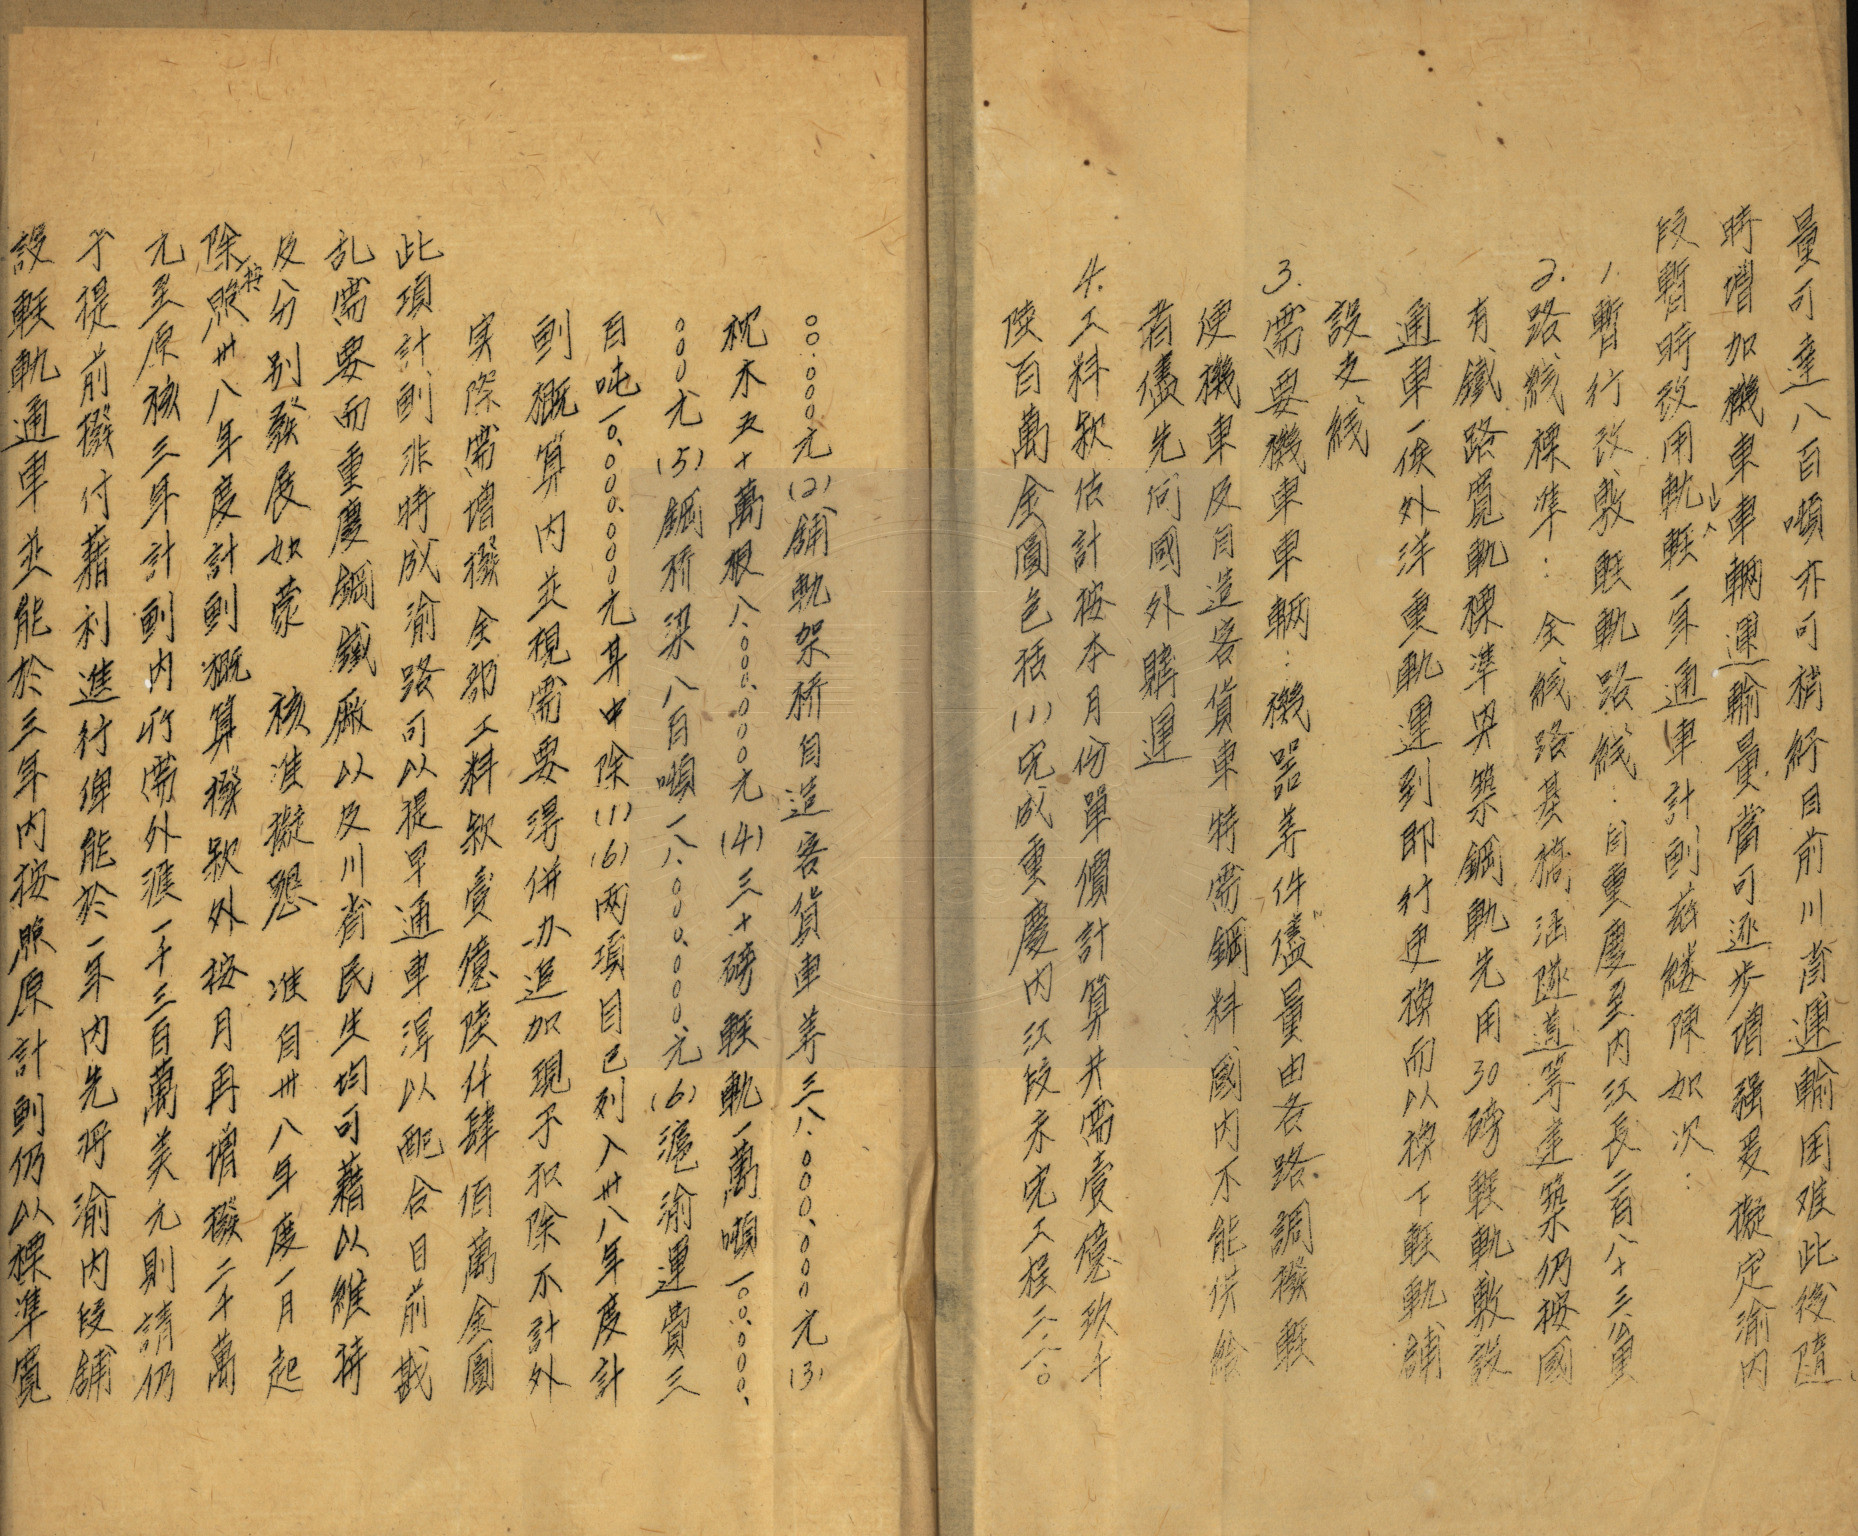 量可達八百噸亦可稍紓目前川省運輸困难此後隨
時增加機車車輛運輸量當可逐步增强爰擬定渝內
段暫時改用軌輕一年通車計劃茲縷陳如次：
1.暫行改敷輕軌路綫：自重慶至內江長二百八十三公里
2.路綫標準：全綫路基橋涵隧道等建築仍按國
有鐵路寬軌標準興築鋼軌先用30磅輕軌敷設
通車一俟外洋重軌運到即行更換而以換下輕軌鋪
設支綫
3.需要機車車輛：機器等件儘量由各路調撥輕
便機車及自造客貨車特需鋼料國內不能供給
者儘先向國外購運
4.工料欵估計按本月份單價計算共需壹億玖千
陸百萬金圓包括(1)完成重慶內江段未完工程二.二〇
〇〇.〇〇〇元(2)鋪軌架桥自造客貨車等三八.〇〇〇.〇〇〇元(3)
枕木五十萬根八.〇〇〇.〇〇〇元(4)三十磅輕軌一萬噸一〇.〇〇〇.
〇〇〇元(5)鋼桥梁八百噸一八.〇〇〇.〇〇〇元(6)滬渝運費三
百吨一〇.〇〇〇.〇〇〇元其中除(1)(6)两項目已列入卅八年度計
劃概算內並視需要得併办追加現予扣除不計外
实際需增撥全部工料欵壹億陸仟肆佰萬金圓
此項計劃非特成渝路可以提早通車得以配合目前戡
乱需要而重慶鋼鐵廠以及川省民生均可藉以維持
及分别發展如蒙　核准擬懇　准自卅八年度一月起
除按照卅八年度計劃概算撥欵外按月再增撥二千萬
元至原核三年計劃內所需外滙一千三百萬美元則請仍
予提前撥付藉利進行俾能於一年內先將渝內段鋪
設輕軌通車並能於三年內按照原計劃仍以標準寬